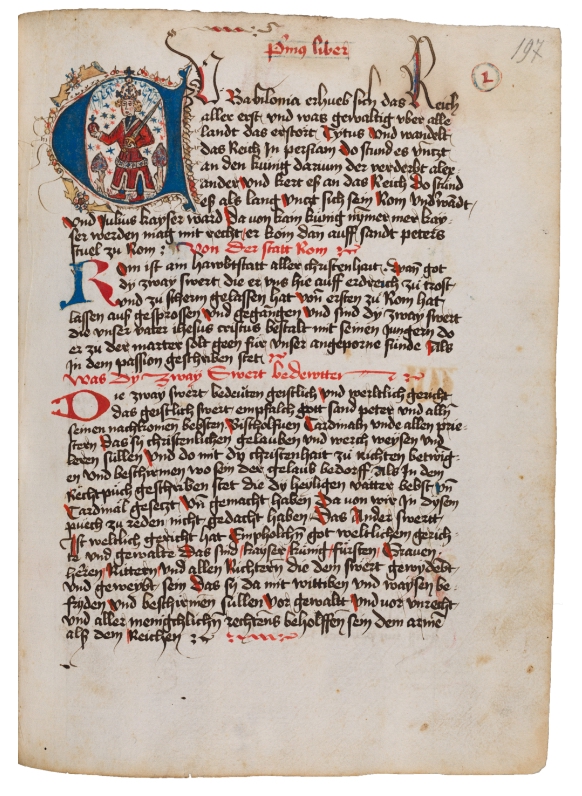 Primus liber
197
1
ZU Babilonia erhueb sich das Reich
aller erst und was gewaltig uber alle
landt das erstort Cytus Vnd wandelt
das Reich In persiam Do stund es untzt
an den kunig darium der verderbt alex
ander Vnd kert es an das Reich Do stund
es als lang untz sich sein Rom undter
Vnd Julius kayser ward Da von kam kunig nymer mer kay-
ser werden mag mit recht er kom dan auff sandt peters
stuel zu Rom : Von Der statt Rom
Rom ist am hawbtstatt aller christenhait. Wan got
dy zway swert die er vns hie auff erdreich zu trost
vnd zu scherm gelassen hat von ersten zu Rom hat
lassen auß gesprossen vnd gegangen vnd sind dy zway swert
die vnser vater ihesus cristus bestalt mit seinen Jungern do
er zu der martter solt geen für vnser angeporne sünde Als
In dem passion geschriben stet
Was Dy Zway Swert bedewtten
Die zway swert bedeuten geistlich Vnd werltlich gericht
das geistlich swert empfalch gott sand peter vnd alln
seinen nachkomen bebsten Bischolffuen Cardinaln vnde allen prie-
stern Das sy christenlichen gelauben vnd werch weysen vnd
leren süllen Vnd do mit dy christenhait zu richten betwig-
en vnd beschirmen wo sein der gelaub bedorff Als In dem
Rechtpuch geschriben stet die dy heyligen vattere bebst vn
Cardinal gesetzt Vn gemacht haben Da von wir In dysem
puech zu reden nicht gedacht haben Das Ander swertt
Ist weltlich gericht hat Empholchn got weltlichem gerich-
te vnd gewalte Das sind kayser künig fürsten Grauen
herren Rittern vnd allen Richtern die dem swert gewydebt
vnd geweybt sein Das sy da mit wittiben vnd waysen be-
friden Vnd beschirmen süllen Vor gewaltt Vnd vor vnrecht
vnd aller menigchlichn rechtens beholffen sein dem arme
alß dem Reichen